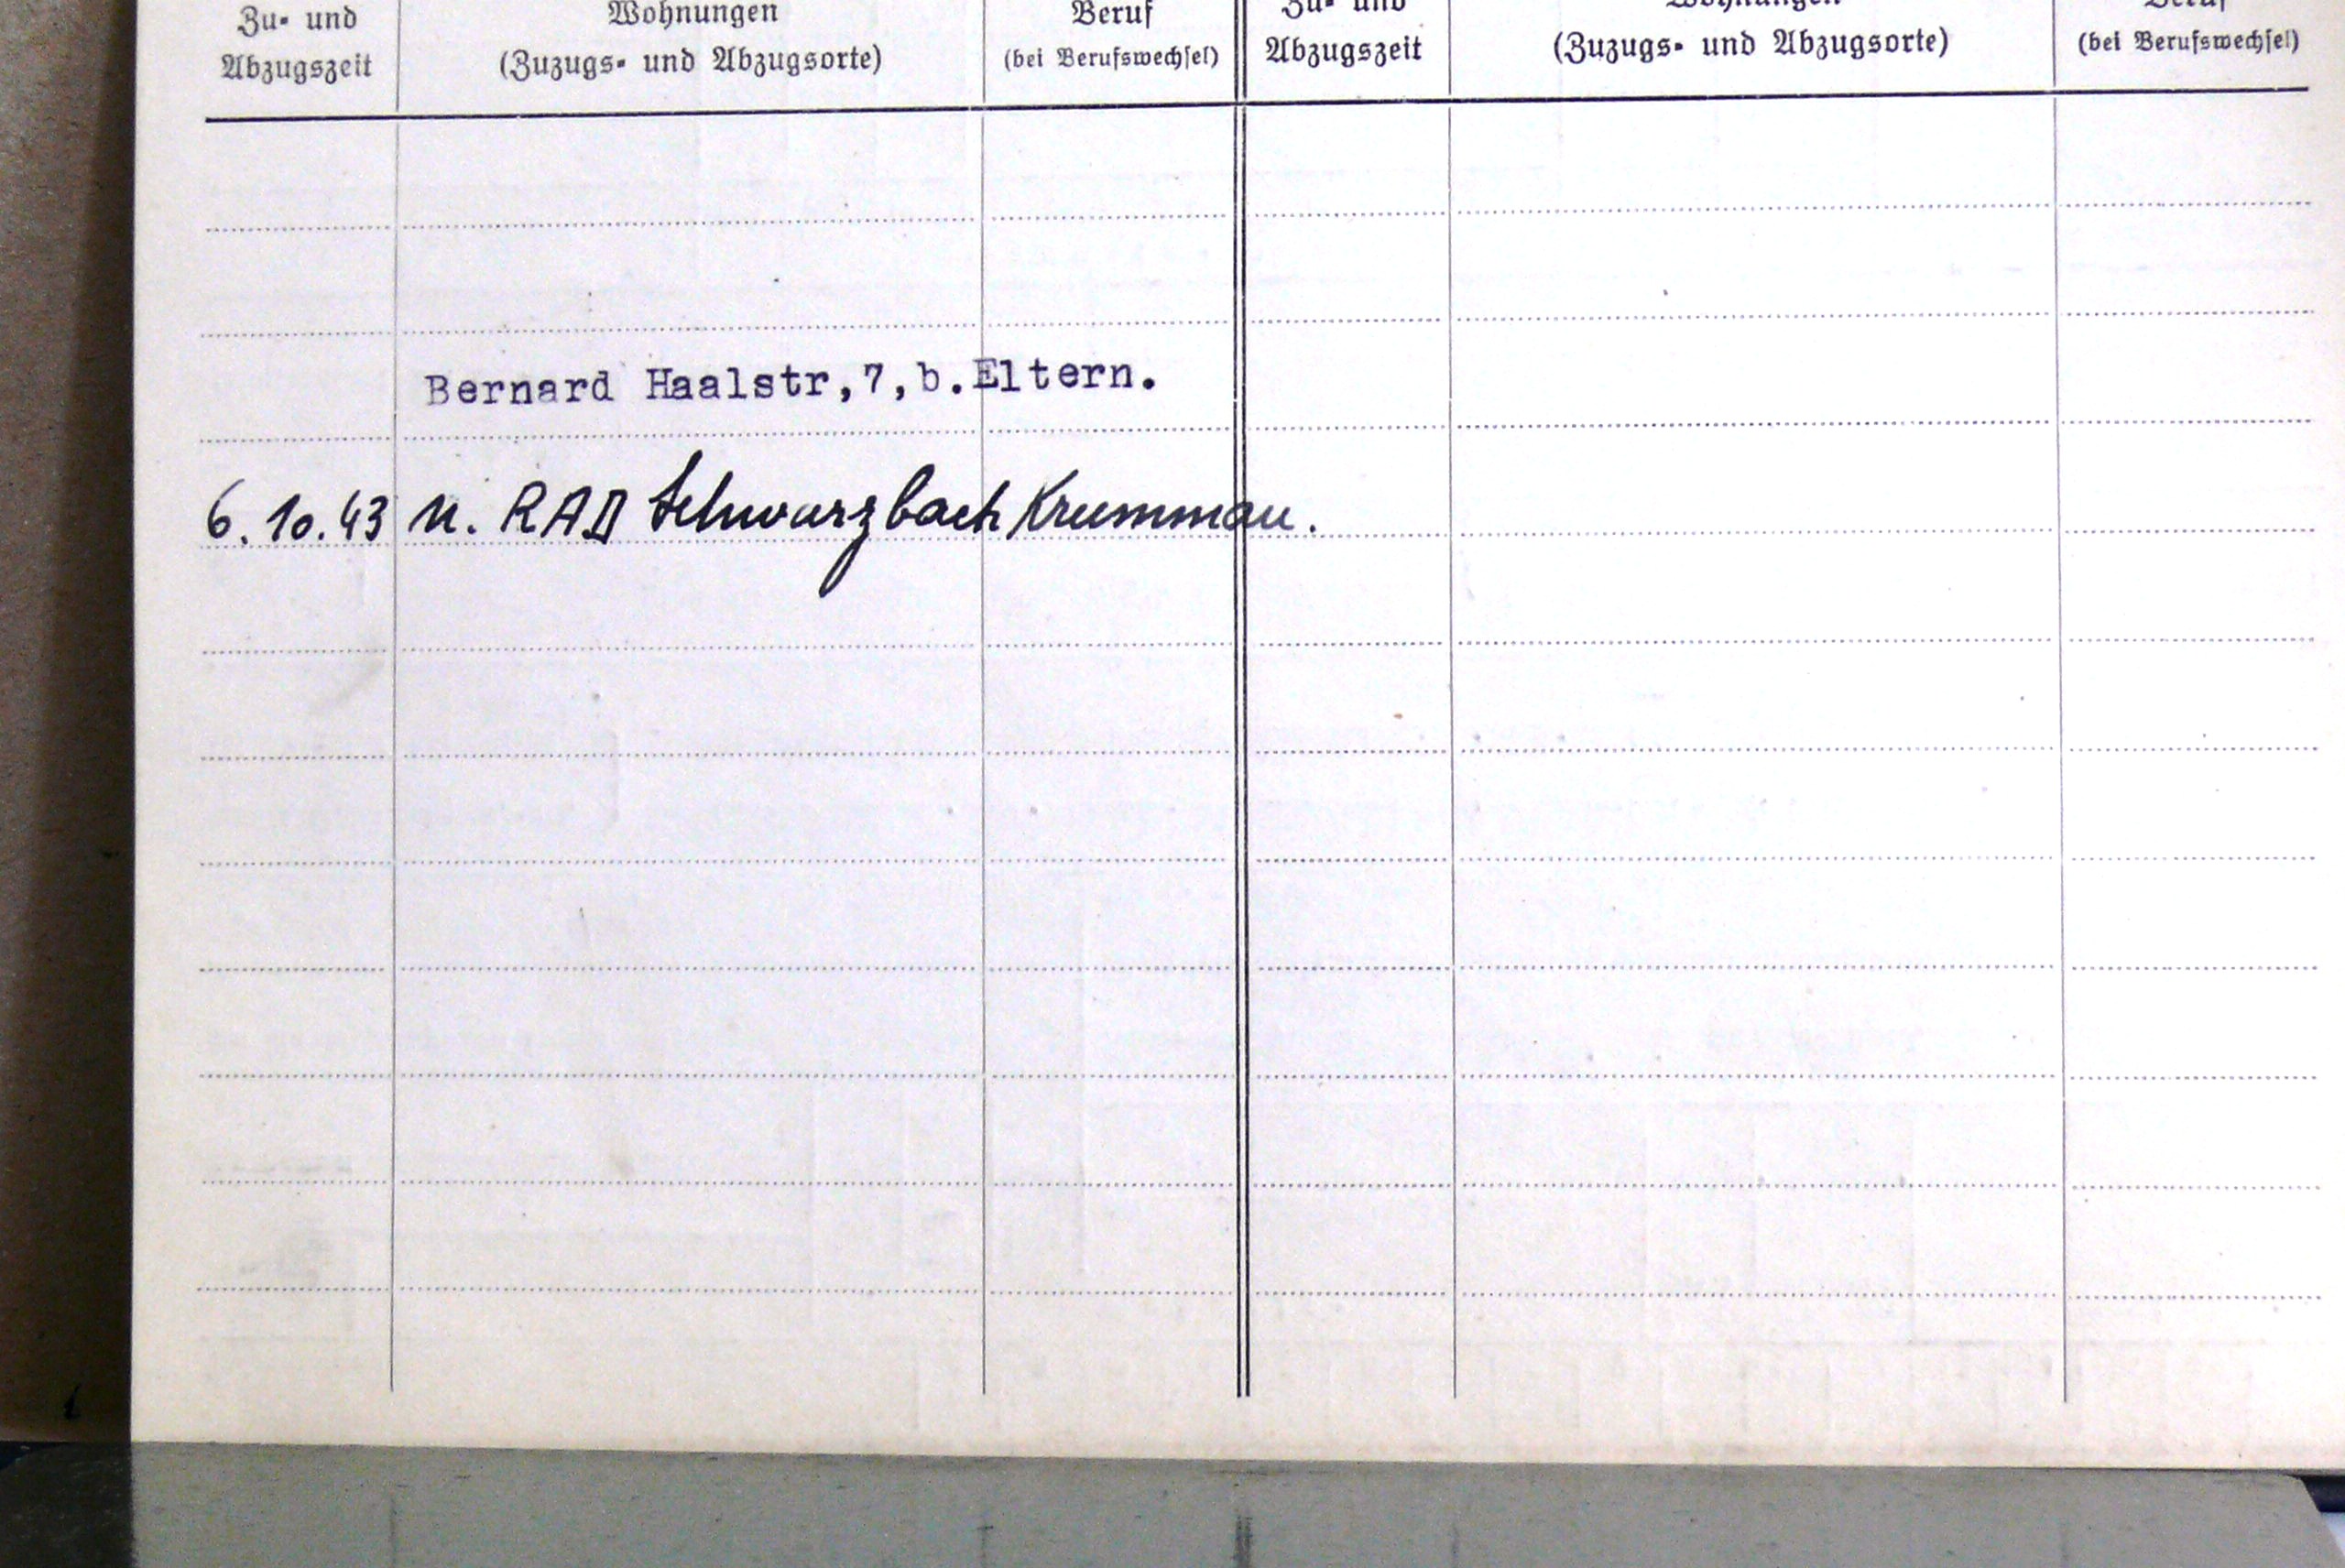 Zu- und Wohnungen Beruf Zu- und Wohnungen Beruf
Abzugszeit (Zuzugs- und Abzugsorte) (bei Berufswechsel) Abzugszeit (Zuzugs- und Abzugsorte) (bei Berufswechsel)
Bernard Haalstr,7,b.Eltern.
6.10.43 n. RAD Schwarzbach Krummau.